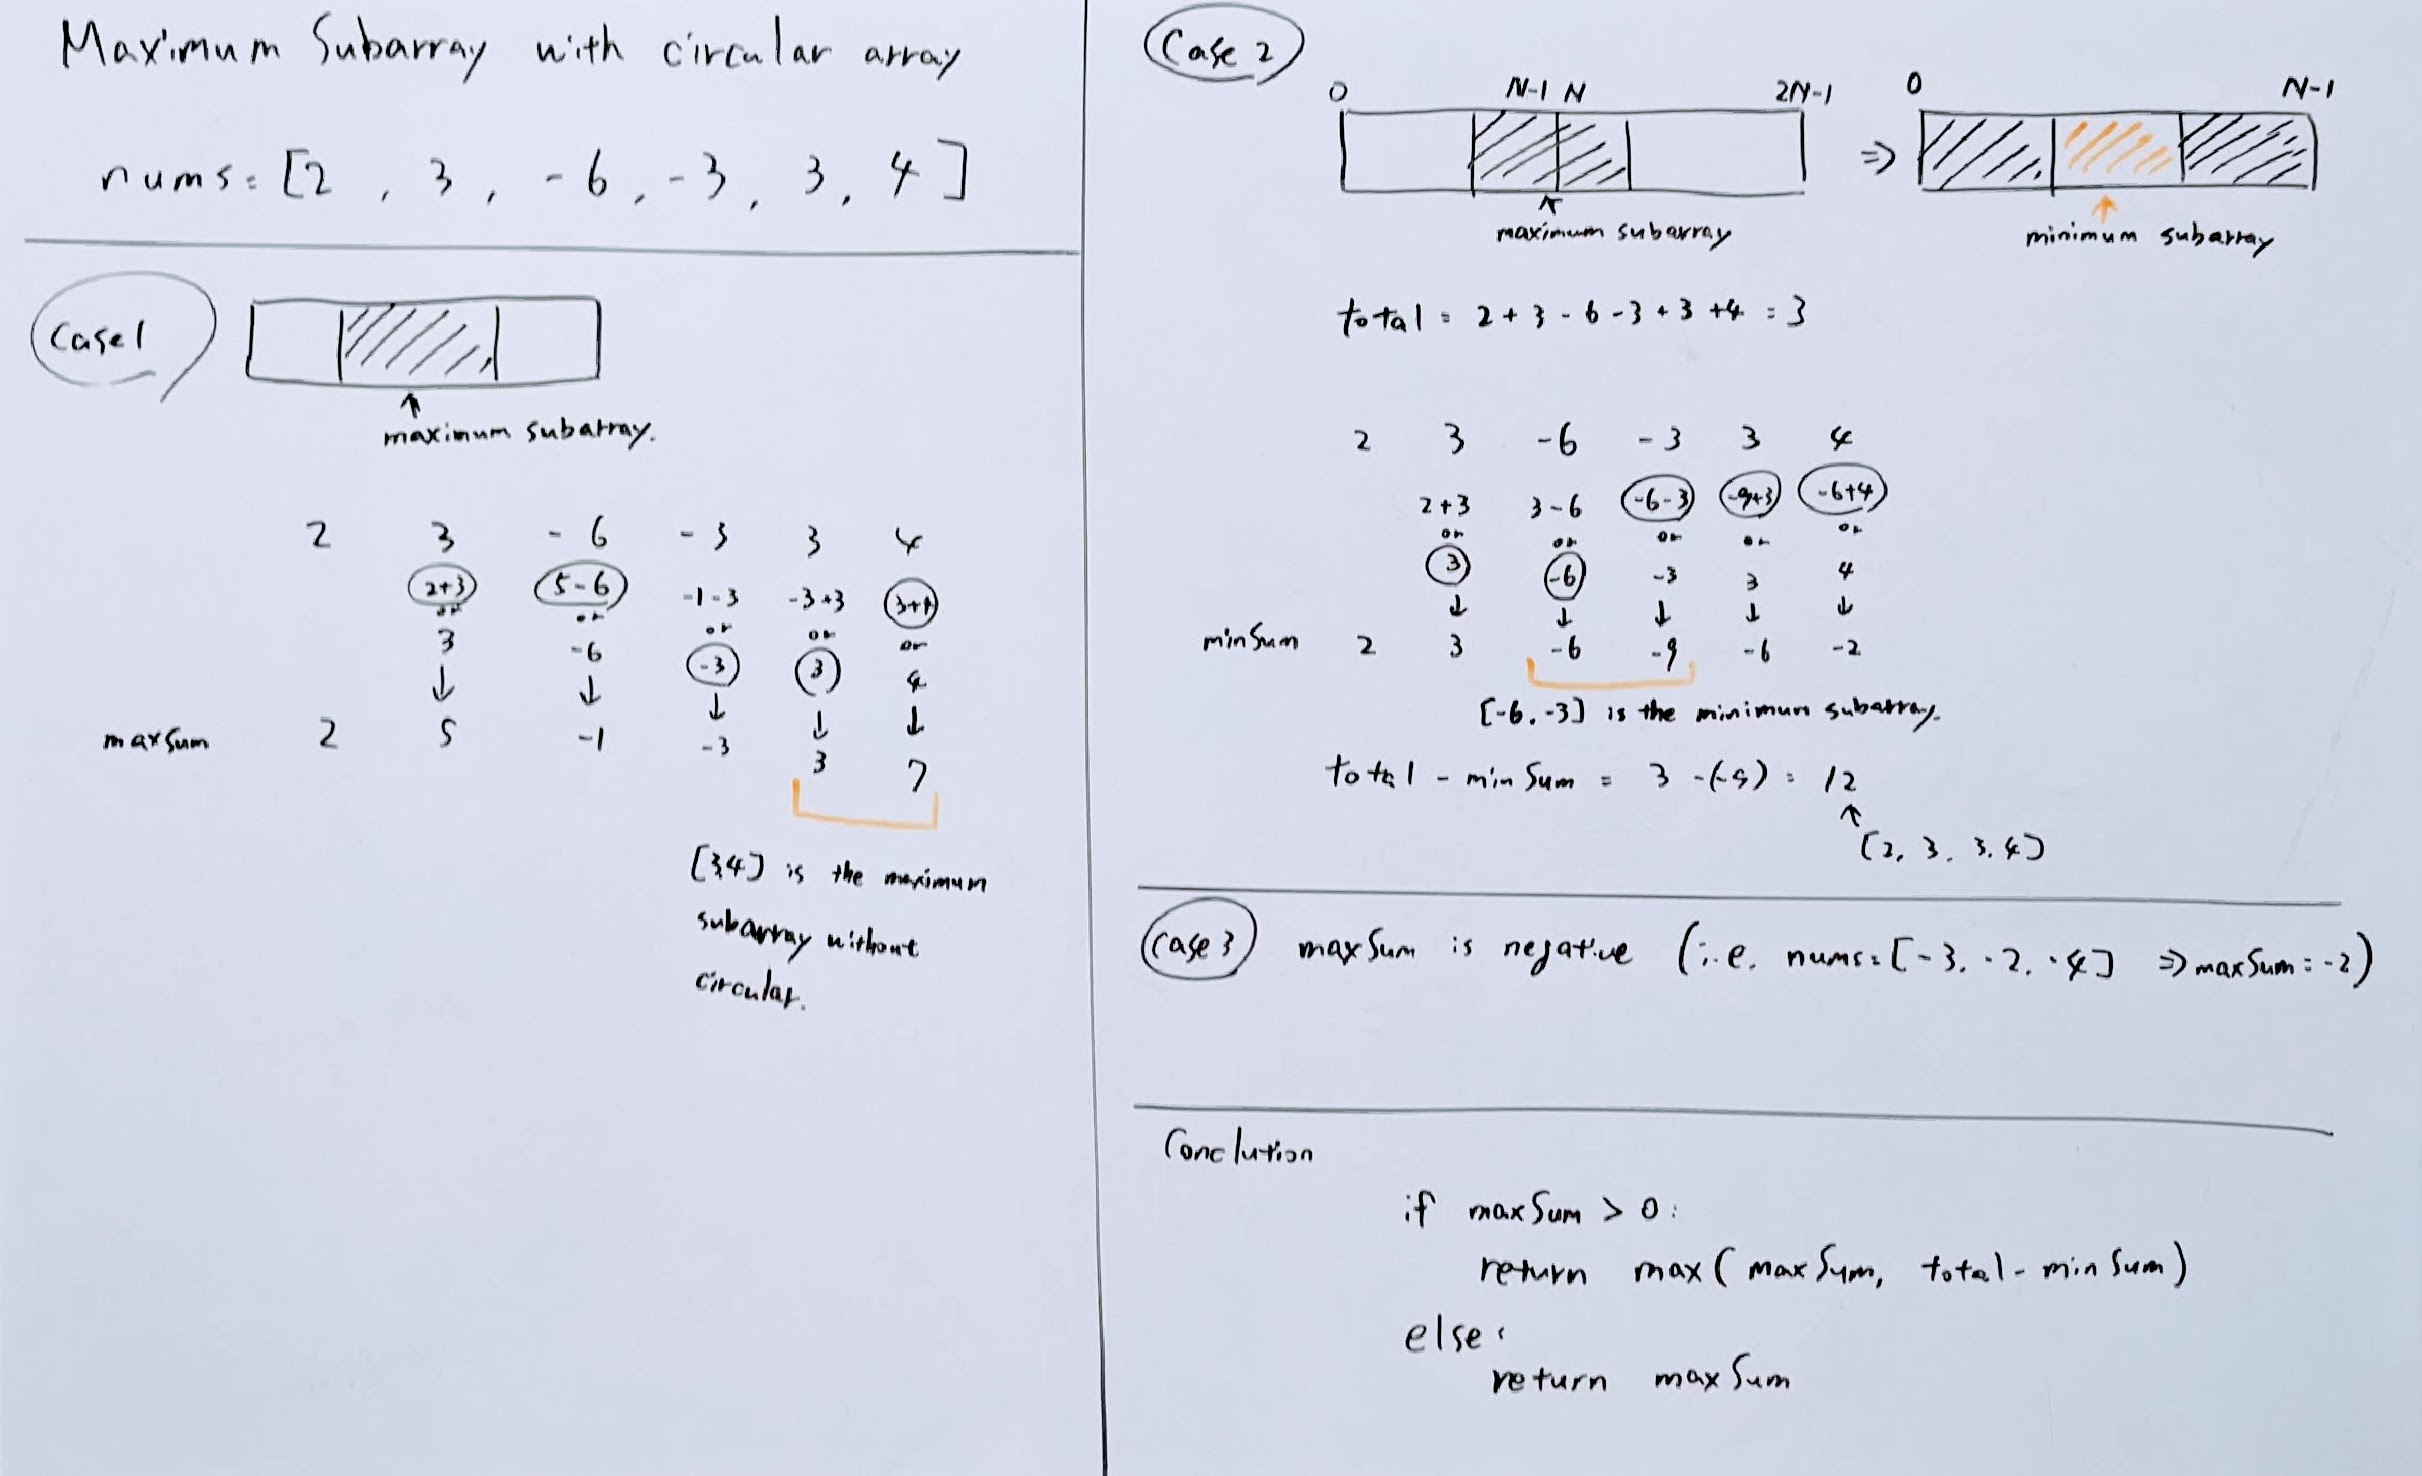 Maximum Subarray with circular array
nums = [2 , 3 , -6 , -3 , 3 , 4 ]
Case1
maximum subarray.
2 3 -6 -3 3 4
2+3 5-6 -1-3 -3+3 3+4
or or or or or
3 -6 -3 3 4
↓ ↓ ↓ ↓ ↓
maxSum 2 5 -1 -3 3 7
[3,4] is the maximum
subarray without
circular.
Case 2
0 N-1 N 2N-1 ⇒ 0 N-1
maximum subarray
minimum subarray
total = 2 + 3 - 6 - 3 + 3 + 4 = 3
2 3 -6 -3 3 4
2+3 3-6 -6-3 -9+3 -6+4
or or or or or
3 -6 -3 3 4
↓ ↓ ↓ ↓ ↓
minSum 2 3 -6 -9 -6 -2
[-6, -3] is the minimum subarray.
total - minSum = 3 -(-9) = 12
[2, 3, 3, 4]
Case 3 maxSum is negative (i.e. nums = [-3, -2, -4] ⇒ maxSum = -2)
Conclution
if maxSum > 0:
return max( maxSum, total - minSum)
else:
return maxSum